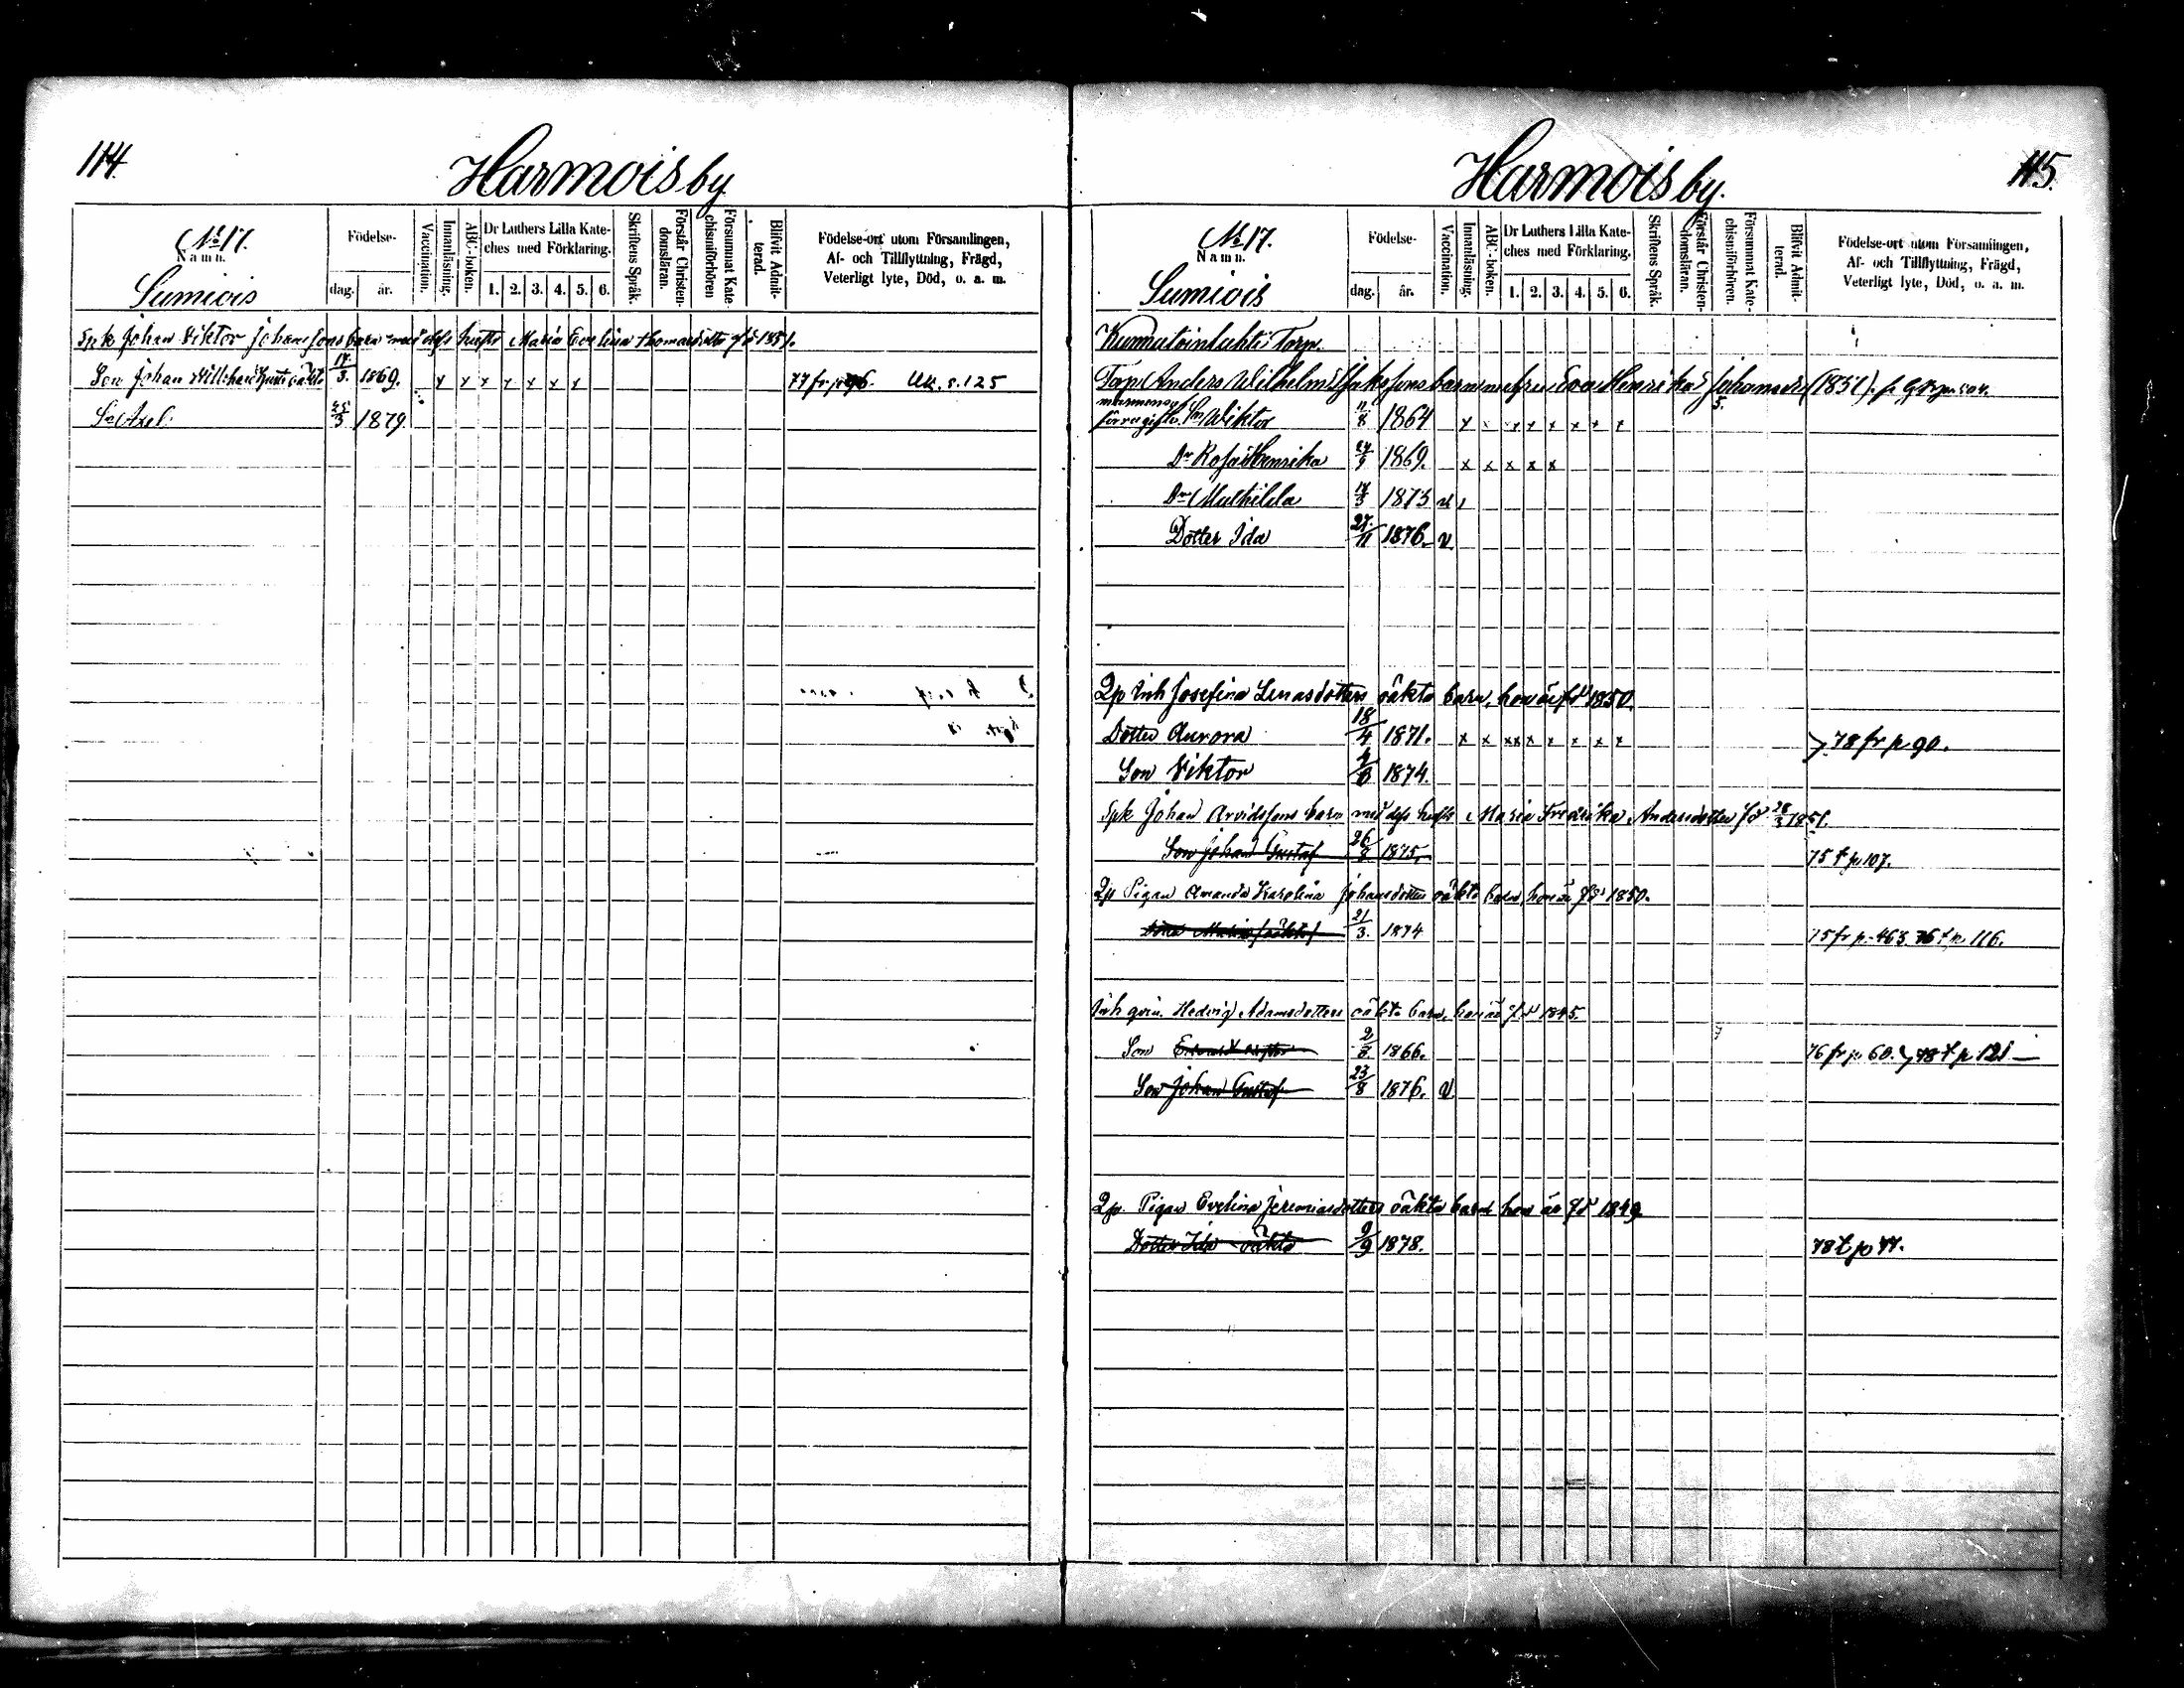 114.
Harmois by
№ 17.
Namn.
Sumiois
Födelse-
dag. år.
Vaccination.
Innanläsning.
ABC-boken.
Dr Luthers Lilla Kate-
ches med Förklaring.
1. 2. 3. 4. 5. 6.
Skriftens Språk.
Förstår Christen-
domsläran.
Försummat Kate-
chismiförhören
Blifvit Admit-
terad.
Födelse-ort utom Församlingen,
Af- och Tillflyttning, Frägd,
Veterligt lyte, Död, o. a. m.
Spk Johan Viktor Johanssons barn med dess hustr Maria Evelina Thomasdotter född 1851.
Son Johan oäkta 17/3. 1869. x x x x x x x 77 fr p 96. Uk. s. 125
Sn Axel 25/3 1879
115.
Harmois by.
№ 17.
Namn.
Sumiois
Födelse-
dag. år.
Vaccination.
Innanläsning.
ABC-boken.
Dr Luthers Lilla Kate-
ches med Förklaring.
1. 2. 3. 4. 5. 6.
Skriftens Språk.
Förstår Christen-
domsläran.
Försummat Kate-
chismiförhören.
Blifvit Admit-
terad.
Födelse-ort utom Församlingen,
Af- och Tillflyttning, Frägd,
Veterligt lyte, Död, o. a. m.
Torp.
Torp. Anders Wilhelm Jakssons barn m hu Eva Henrika Johansdr (1851).
mannens af
förra gifte. Sn Wiktor 11/8 1864 x x x x x x x x
5.
Dr Rosa Henrika 24/9 1869. x x x x x
Dr Mathilda 17/3 1873 v
Dotter Ida 27/11 1876. v
Qp Inh Josefina Lenasdotters oäkta barn, hon är född 1850.
Dotter Aurora 18/4 1871. x x xx x x x x x 78 fr p 90.
Son Viktor 1874.
Spk Johan Arvidssons barn med dess hustr Maria Fredrika Andersdotter född 28/3 1851.
Son Johan Gustaf 26/8 1875. 75 t p 107.
Qp Pigan Amanda Karolina Johansdotters oäkta barn, hon är född 1850.
21/3. 1874 75 fr p. 463. 76 t p. 116.
Inh qvin. Hedvig Adamsdotters oäkta barn, hon är född 1845.
Son 2/8. 1866. 76 fr p 60. 78 t p 121
Son Johan Gustaf 23/8 1876. v
Qp. Pigan Evelina Jeremiasdotters oäkta barn hon är född 1849.
Dotter Ida oäkta 9/9 1878. 78 t p 77.